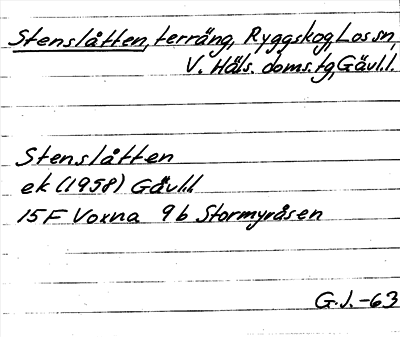 Stenslåtten, terräng, Ryggskog, Los sn,
V. Häls. doms. tg, Gävl. l.
Stenslåtten
ek (1958) Gävl. l
15F Voxna 9b Stormyråsen
G.J.-63